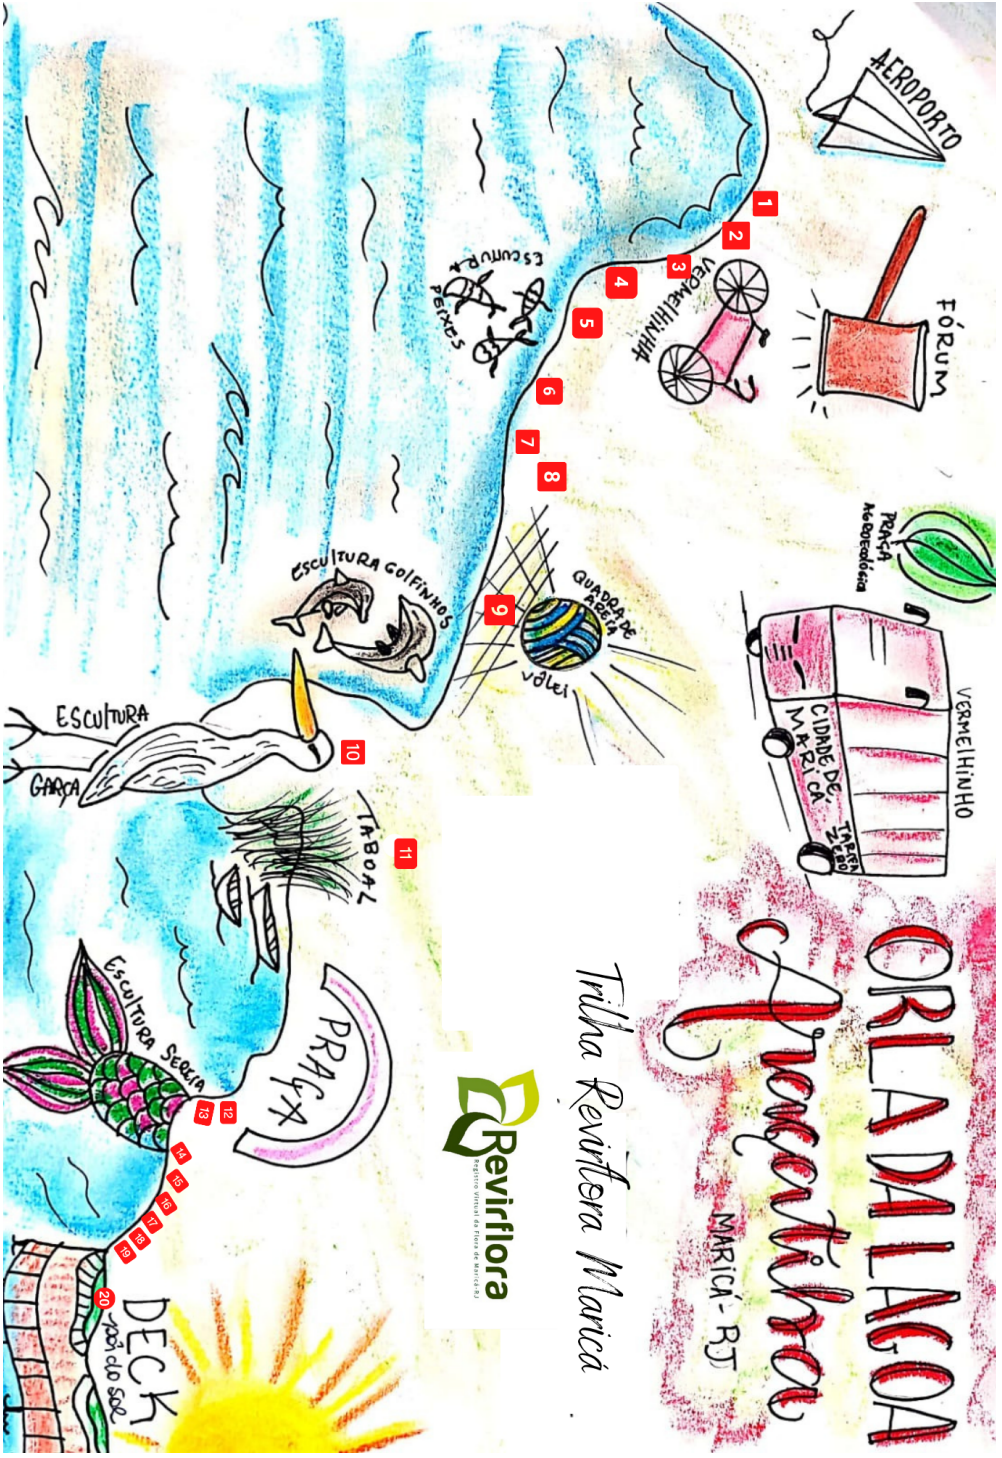 ORLA DA LAGOA
Araçatiba
MARICÁ-RJ
Trilha Revirflora Maricá
Revirflora
Registro Virtual da Flora de Maricá-RJ
AEROPORTO
FÓRUM
VERMELHINHA
PRAÇA
AGROECOLÓGICA
VERMELHINHO
CIDADE DE
MARICÁ
TARIFA
ZERO
ESCUTURA
PEIXES
QUADRA DE
AREIA
VÔLEI
ESCULTURA GOLFINHOS
ESCULTURA
GARÇA
TABOAL
PRAÇA
ESCULTURA SEREIA
DECK
pôr do sol
1
2
3
4
5
6
7
8
9
10
11
12
13
14
15
16
17
18
19
20